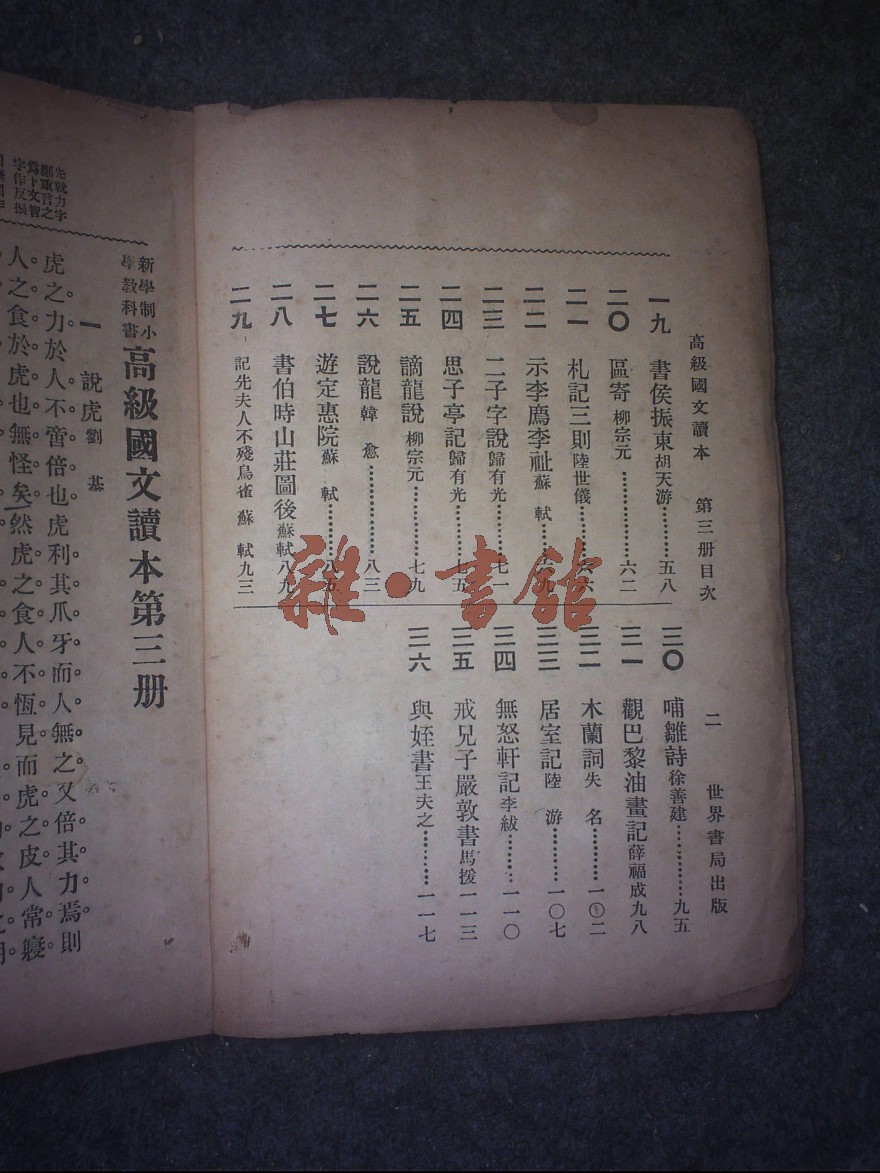 高級國文讀本 第三册目次 二 世界書局出版
一九 書侯振東 胡天游………五八
二〇 區寄 柳宗元…………六二
二一 札記三則 陸世儀………六六
二二 示李廌李祉 蘇軾
二三 二子字說 歸有光………七一
二四 思子亭記 歸有光………七五
二五 謫龍說 柳宗元…………七九
二六 說龍 韓愈…………八三
二七 遊定惠院 蘇軾………八五
二八 書伯時山莊圖後 蘇軾 八九
二九 記先夫人不殘鳥雀 蘇軾 九三
三〇 哺雛詩 徐善建…………九五
三一 觀巴黎油畫記 薛福成 九八
三二 木蘭詞 失名…………一〇二
三三 居室記 陸游…………一〇七
三四 無怒軒記 李紱………一一〇
三五 戒兄子嚴敦書 馬援 一一三
三六 與姪書 王夫之………一一七
新學制小學教科書 高級國文讀本第三册
一 說虎 劉基
虎之力於人不啻倍也虎利其爪牙而人無之又倍其力焉則
人之食於虎也無怪矣然虎之食人不恆見而虎之皮人常寢
爲下文智
字作反振
雜·書館